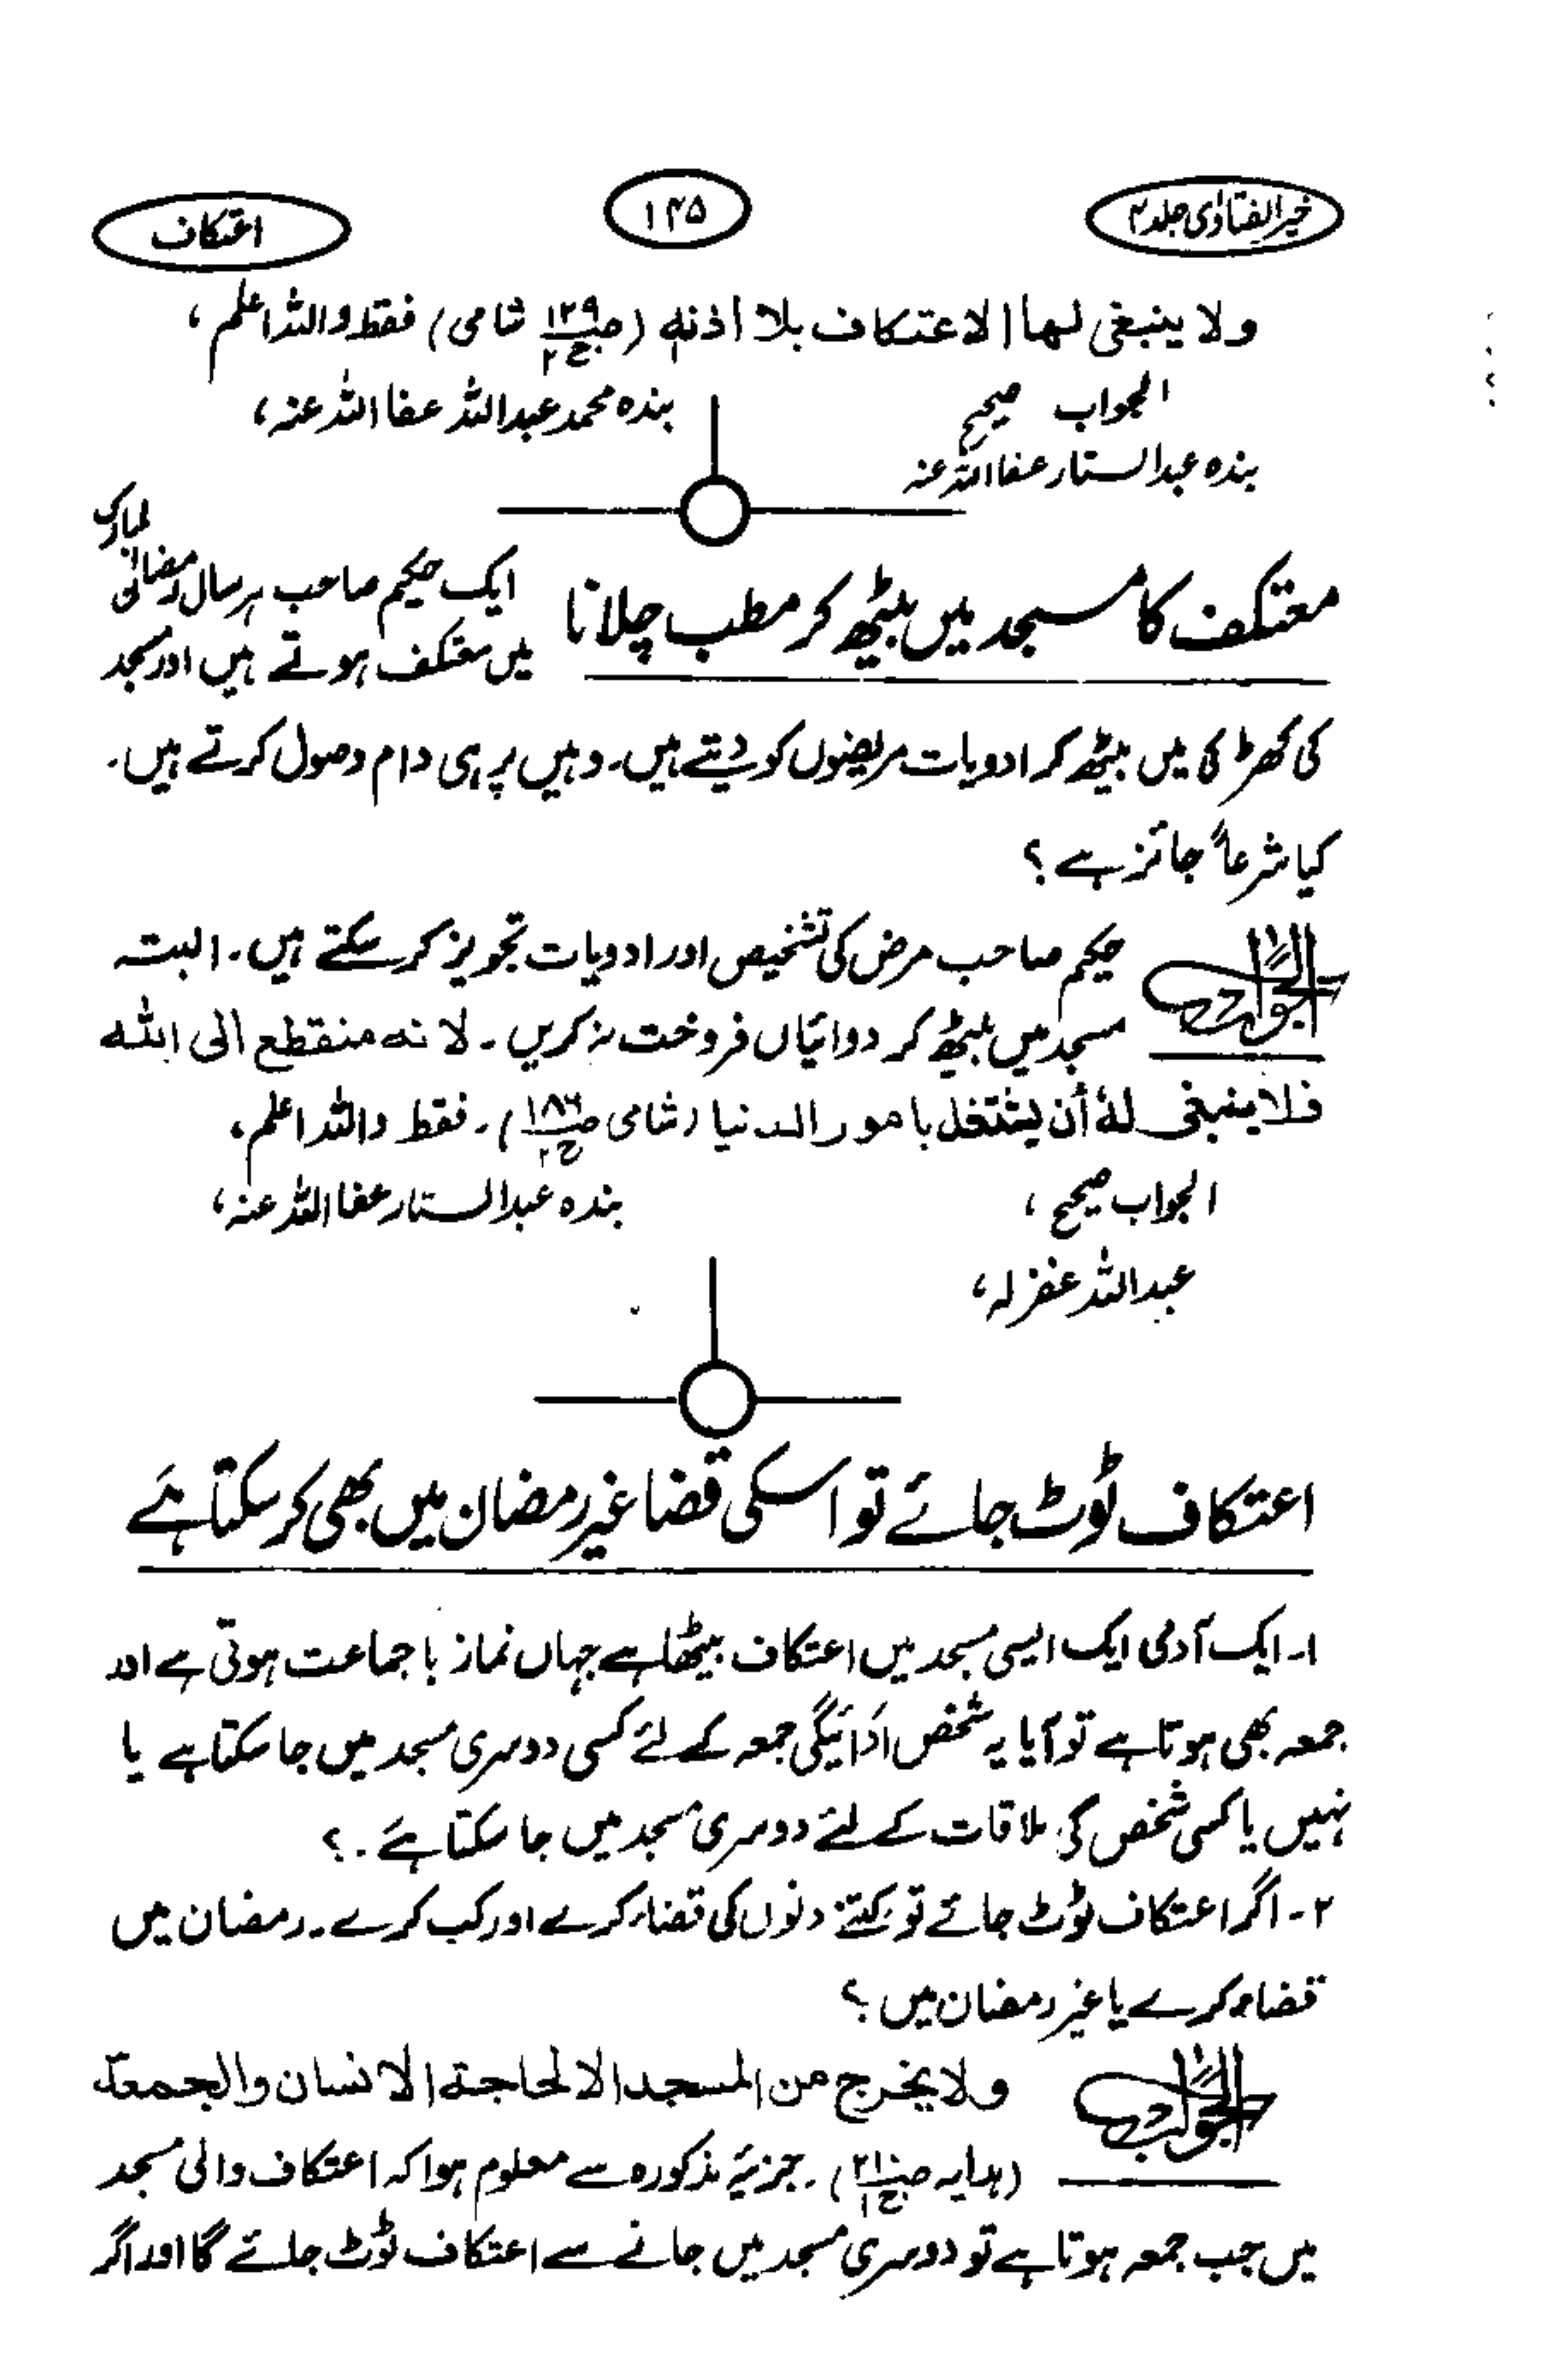 خیر الفتاوٰی جلد ۴
۱۴۵
اعتکاف
ولا ينبغى لها الاعتكاف بلا اذنه (ص۱۲۹ ج۲ شامی) فقط واللہ اعلم،
الجواب صحیح
بندہ محمد عبداللہ عفا اللہ عنہ،
بندہ عبدالستار عفا اللہ عنہ
معتکف کا مسجد میں بیٹھ کر مطب چلانا
ایک حکیم صاحب ہر سال رمضان المبارک
میں معتکف ہوتے ہیں اور مسجد
کی کھڑکی میں بیٹھ کر ادویات مریضوں کو دیتے ہیں۔ وہیں پر ہی دام وصول کرتے ہیں۔
کیا شرعاً جائز ہے؟
الجواب
حکیم صاحب مرض کی تشخیص اور ادویات تجویز کر سکتے ہیں۔ البتہ
مسجد میں بیٹھ کر دوائیاں فروخت نہ کریں۔ لانه منقطع الى الله
فلا ينبغى لهٗ أن يشتغل بامور الدنيا (شامی ص۱۸۶ ج۲)۔ فقط واللہ اعلم،
الجواب صحیح،
بندہ عبدالستار عفا اللہ عنہ،
عبداللہ غفرلہ،
اعتکاف ٹوٹ جائے تو اسکی قضا غیر رمضان میں بھی کر سکتا ہے
۱۔ ایک آدمی ایک ایسی مسجد میں اعتکاف بیٹھا ہے جہاں نماز با جماعت ہوتی ہے اور
جمعہ بھی ہوتا ہے تو آیا یہ شخص ادائیگی جمعہ کے لئے کسی دوسری مسجد میں جا سکتا ہے یا
نہیں یا کسی شخص کی ملاقات کے لئے دوسری مسجد میں جا سکتا ہے۔؟
۲۔ اگر اعتکاف ٹوٹ جائے تو کتنے دنوں کی قضاء کرے اور کب کرے۔ رمضان میں
قضاء کرے یا غیر رمضان میں؟
الجواب
ولا يخرج من المسجد الا لحاجة الانسان والجمعة
(ہدایہ ص۲۱۰ ج۱)۔ جزئیہ مذکورہ سے معلوم ہوا کہ اعتکاف والی مسجد
میں جب جمعہ ہوتا ہے تو دوسری مسجد میں جانے سے اعتکاف ٹوٹ جائے گا اور اگر